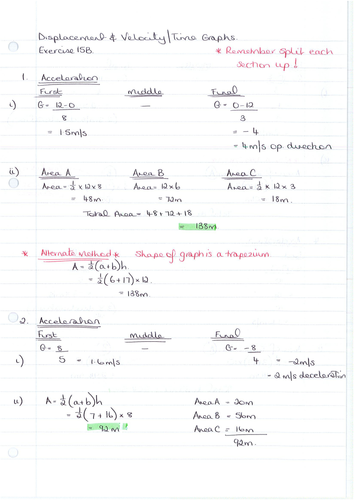 Displacement & Velocity/Time Graphs
Exercise 15B.
* Remember split each section up!
1. Acceleration
First Middle Final
i) G = 12-0 / 8 — G = 0-12 / 3
= 1.5m/s = -4
= 4m/s op direction
ii) Area A Area B Area C
Area = ½ x 12 x 8 Area = 12 x 6 Area = ½ x 12 x 3
= 48m = 72m = 18m.
Total Area = 48 + 72 + 18
= 138m
* Alternate Method * Shape of graph is a trapezium.
A = ½(a+b)h.
= ½(6+17) x 12
= 138m.
2. Acceleration
First Middle Final
i) G = 8 / 5 = 1.6m/s — G = -8 / 4 = -2m/s
= 2m/s deceleration
ii) A = ½(a+b)h Area A = 20m
= ½(7+16) x 8 Area B = 56m
= 92m Area C = 16m
92m.